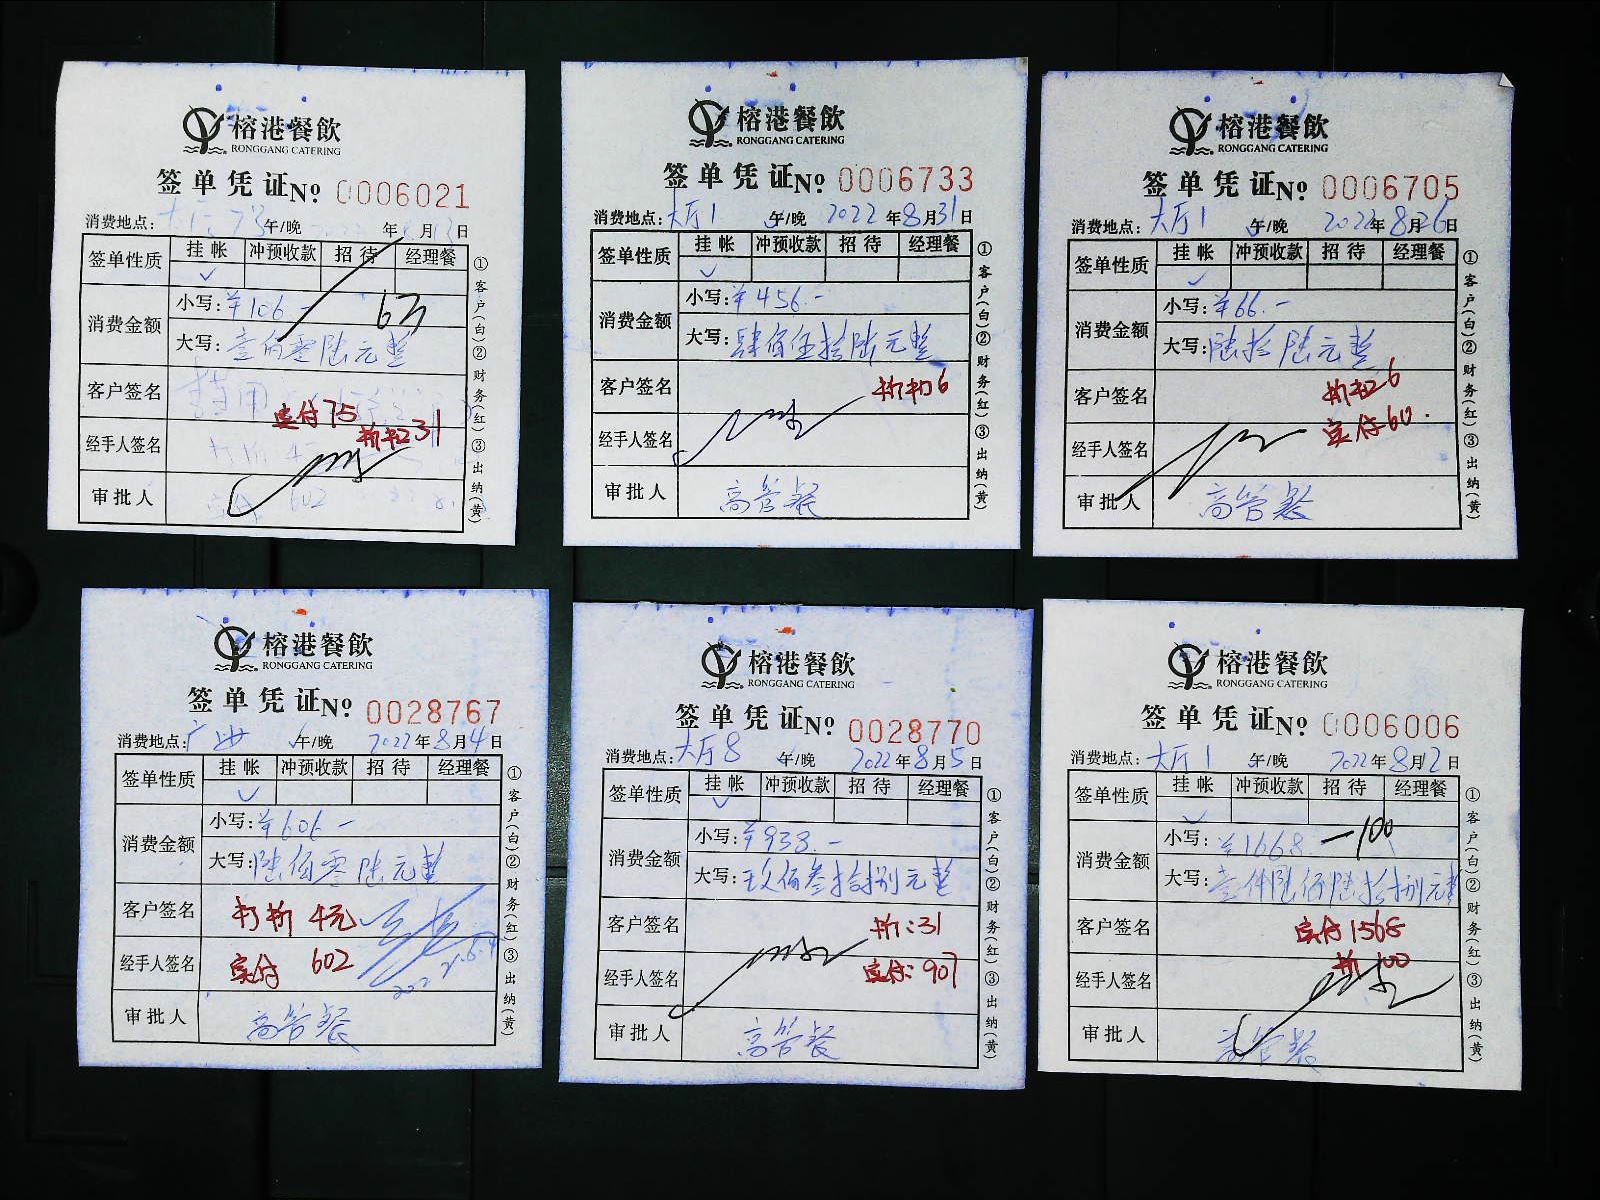 榕港餐飲
RONGGANG CATERING
签单凭证 No 0006021
消费地点: 午/晚 年 8月 日
签单性质 挂帐 冲预收款 招待 经理餐
✓
消费金额 小写: ¥106.-
大写: 壹佰零陆元整
客户签名
实付75
折扣31
经手人签名
审批人
①客户(白)②财务(红)③出纳(黄)
榕港餐飲
RONGGANG CATERING
签单凭证 No 0006733
消费地点: 大厅1 午/晚 2022年8月31日
签单性质 挂帐 冲预收款 招待 经理餐
✓
消费金额 小写: ¥456.-
大写: 肆佰伍拾陆元整
客户签名 折扣6
经手人签名
审批人 高管餐
①客户(白)②财务(红)③出纳(黄)
榕港餐飲
RONGGANG CATERING
签单凭证 No 0006705
消费地点: 大厅1 午/晚 2022年8月26日
签单性质 挂帐 冲预收款 招待 经理餐
✓
消费金额 小写: ¥66.-
大写: 陆拾陆元整
客户签名 折扣6
实付60.
经手人签名
审批人 高管餐
①客户(白)②财务(红)③出纳(黄)
榕港餐飲
RONGGANG CATERING
签单凭证 No 0028767
消费地点: 午/晚 2022年8月4日
签单性质 挂帐 冲预收款 招待 经理餐
✓
消费金额 小写: ¥606-
大写: 陆佰零陆元整
客户签名 打折4元
经手人签名 实付 602
审批人 高管餐
①客户(白)②财务(红)③出纳(黄)
榕港餐飲
RONGGANG CATERING
签单凭证 No 0028770
消费地点: 大厅8 午/晚 2022年8月5日
签单性质 挂帐 冲预收款 招待 经理餐
✓
消费金额 小写: ¥938.-
大写: 玖佰叁拾捌元整
客户签名 折:31
经手人签名 实付:907
审批人 高管餐
①客户(白)②财务(红)③出纳(黄)
榕港餐飲
RONGGANG CATERING
签单凭证 No 0006006
消费地点: 大厅1 午/晚 2022年8月2日
签单性质 挂帐 冲预收款 招待 经理餐
✓
消费金额 小写: ¥1668.-100
大写: 壹仟陆佰陆拾捌元整
客户签名 实付1568
折100
经手人签名
审批人 高管餐
①客户(白)②财务(红)③出纳(黄)